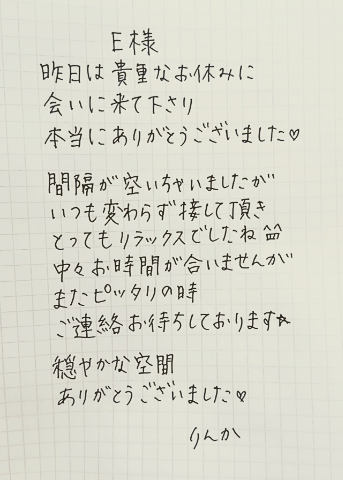 E様
昨日は貴重なお休みに
会いに来て下さり
本当にありがとうございました♡
間隔が空いちゃいましたが
いつも変わらず接して頂き
とってもリラックスでしたね
中々お時間が合いませんが
またピッタリの時
ご連絡お待ちしております☆
穏やかな空間
ありがとうございました♡
りんか